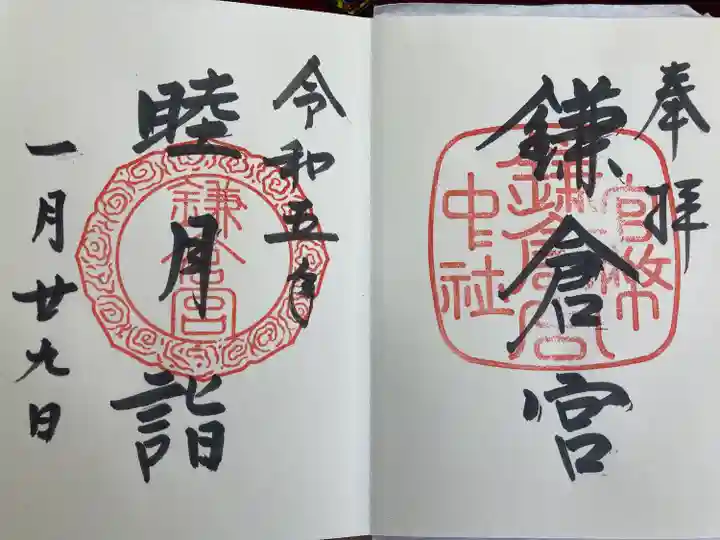 奉拝
鎌倉宮
官幣
鎌倉宮
中社
令和五年
睦月詣
鎌倉宮
一月廿九日